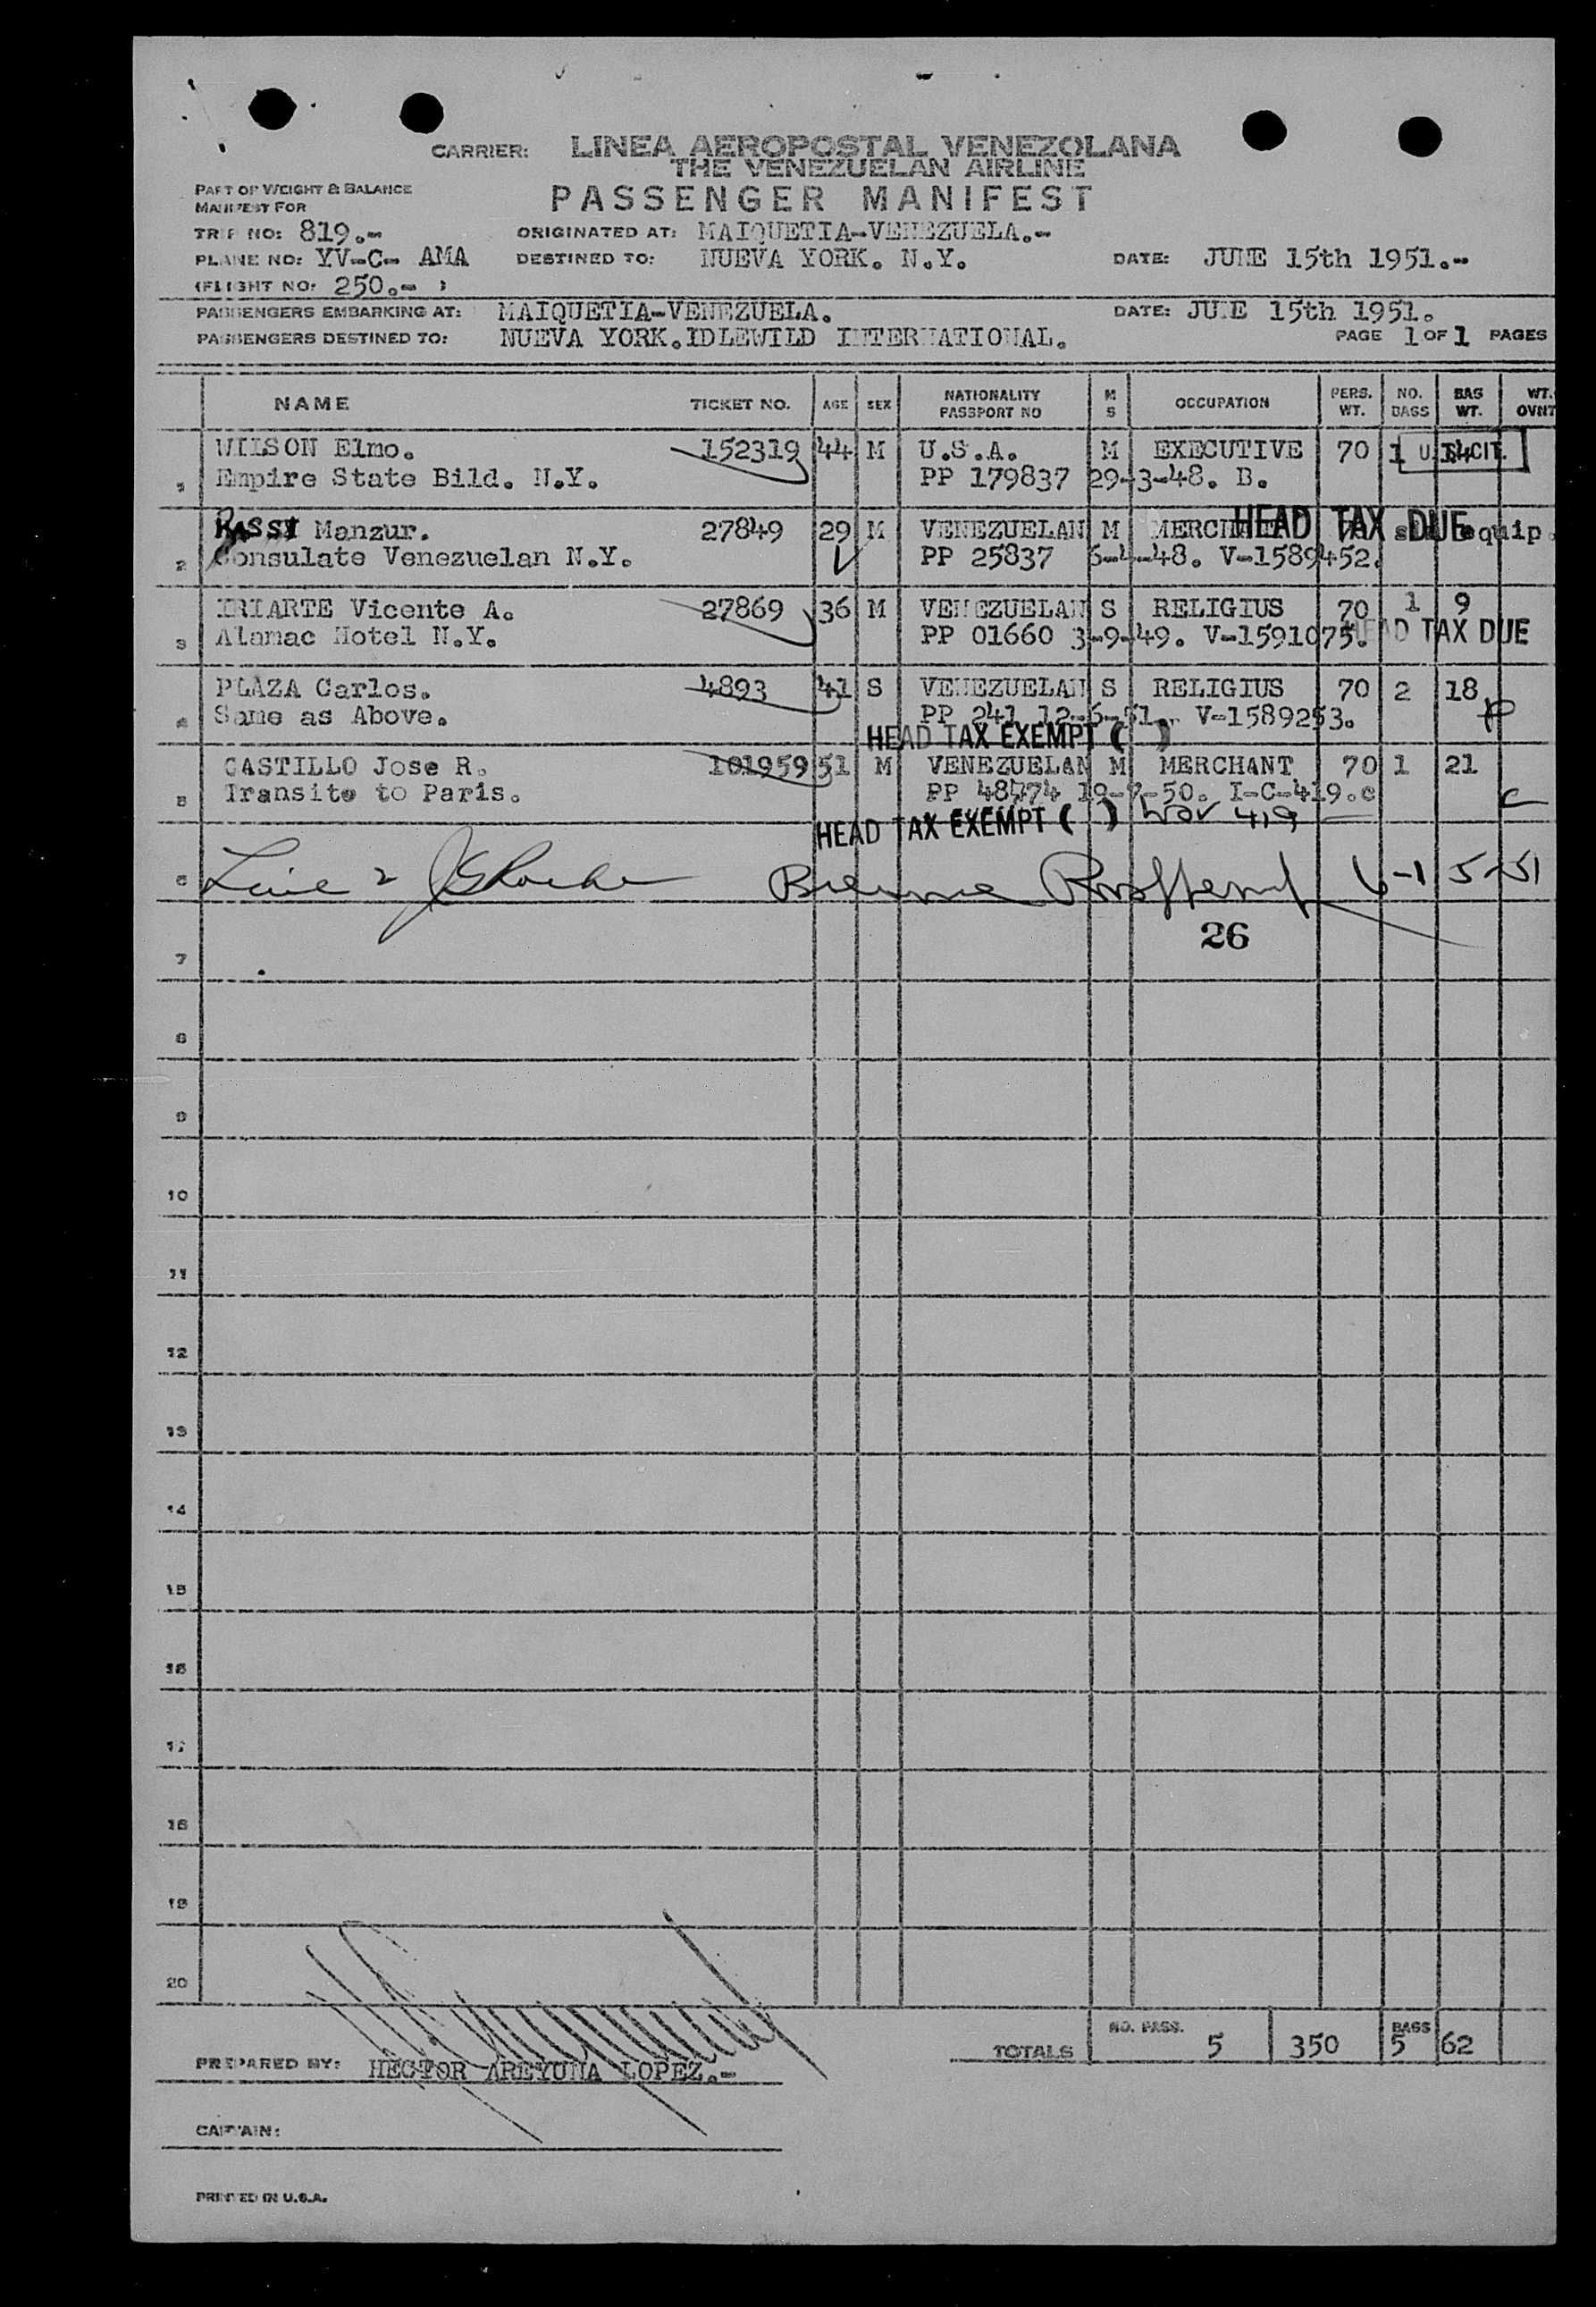 CARRIER: LINEA AEROPOSTAL VENEZOLANA
THE VENEZUELAN AIRLINE
PART OF WEIGHT & BALANCE
MANIFEST FOR
PASSENGER MANIFEST
TRIP NO: 819.- ORIGINATED AT: MAIQUETIA-VENEZUELA.-
PLANE NO: YV-C- AMA DESTINED TO: NUEVA YORK. N.Y. DATE: JUNE 15th 1951.-
(FLIGHT NO: 250.- )
PASSENGERS EMBARKING AT: MAIQUETIA-VENEZUELA. DATE: JUNE 15th 1951.
PASSENGERS DESTINED TO: NUEVA YORK.IDLEWILD INTERNATIONAL. PAGE 1 OF 1 PAGES
NAME TICKET NO. AGE SEX NATIONALITY PASSPORT NO M S OCCUPATION PERS. WT. NO. BAGS BAG WT. WT. OVNT
WILSON Elmo. 152319 44 M U.S.A. M EXECUTIVE 70 1 14 U.S. CIT.
1 Empire State Bild. N.Y. PP 179837 29-3-48. B.
Manzur. 27849 29 M VENEZUELAN M MERCHANT HEAD TAX DUE equip.
2 Consulate Venezuelan N.Y. PP 25837 6-4-48. V-1589452.
IRIARTE Vicente A. 27869 36 M VENEZUELAN S RELIGIUS 70 1 9
3 Alamac Hotel N.Y. PP 01660 3-9-49. V-1591075. HEAD TAX DUE
PLAZA Carlos. 4893 41 S VENEZUELAN S RELIGIUS 70 2 18
4 Same as Above. PP 241 12-6-51. V-1589253.
HEAD TAX EXEMPT ( )
CASTILLO Jose R. 101959 51 M VENEZUELAN M MERCHANT 70 1 21
5 Transito to Paris. PP 48474 19-7-50. I-C-419.c
HEAD TAX EXEMPT ( ) 419
6 Line 2 6-15-51
26
7
8
9
10
11
12
13
14
15
16
17
18
19
20
TOTALS NO. PASS. 5 350 BAGS 5 62
PREPARED BY: HECTOR AREYUNA LOPEZ.-
CAPTAIN:
PRINTED IN U.S.A.